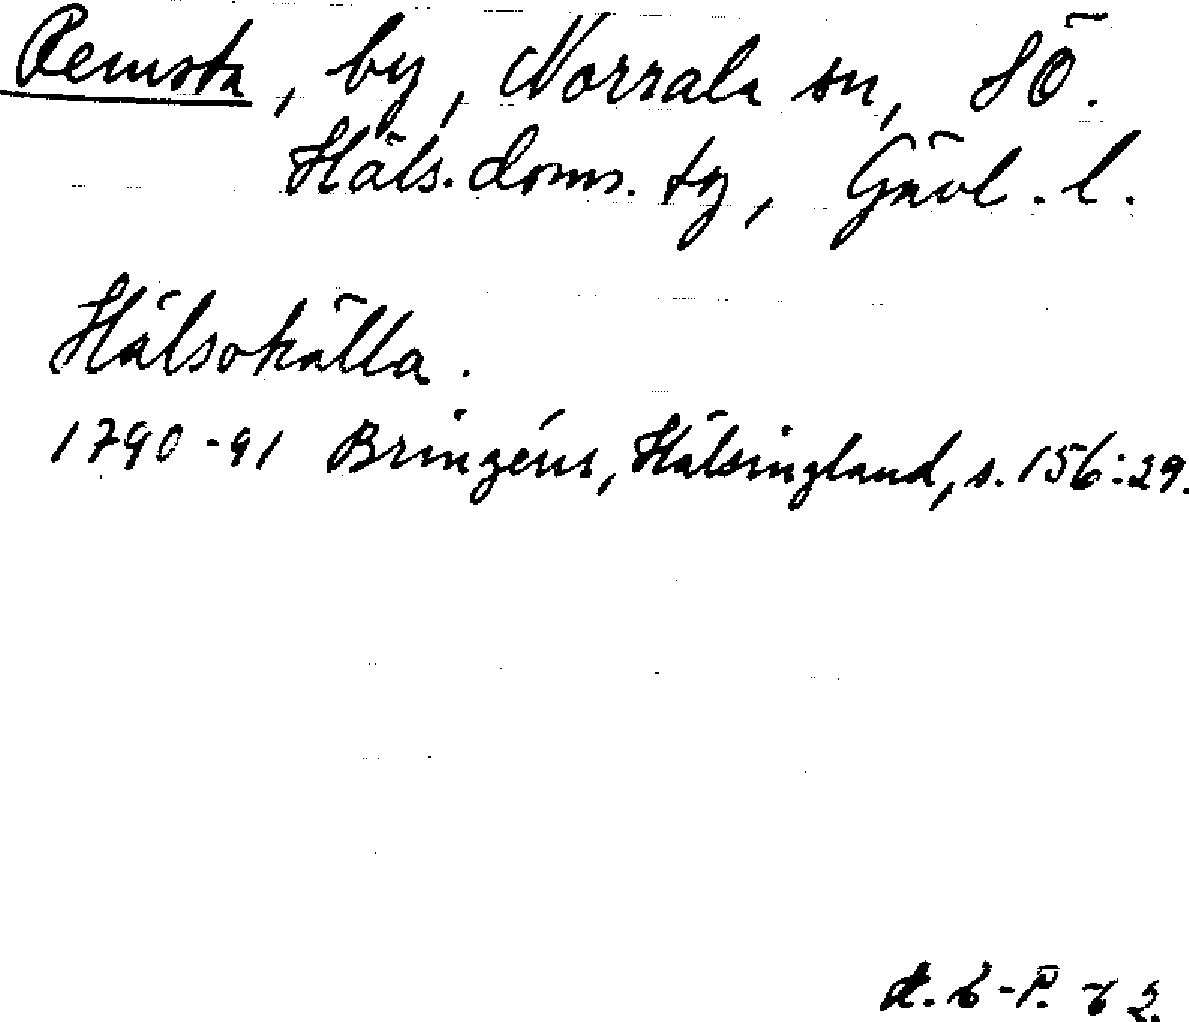 Remsta, by, Norrala sn, SÖ.
Häls. doms. tg, Gävl. l.
Hälsokälla.
1790-91 Bringéus, Hälsingland, s. 156:29.